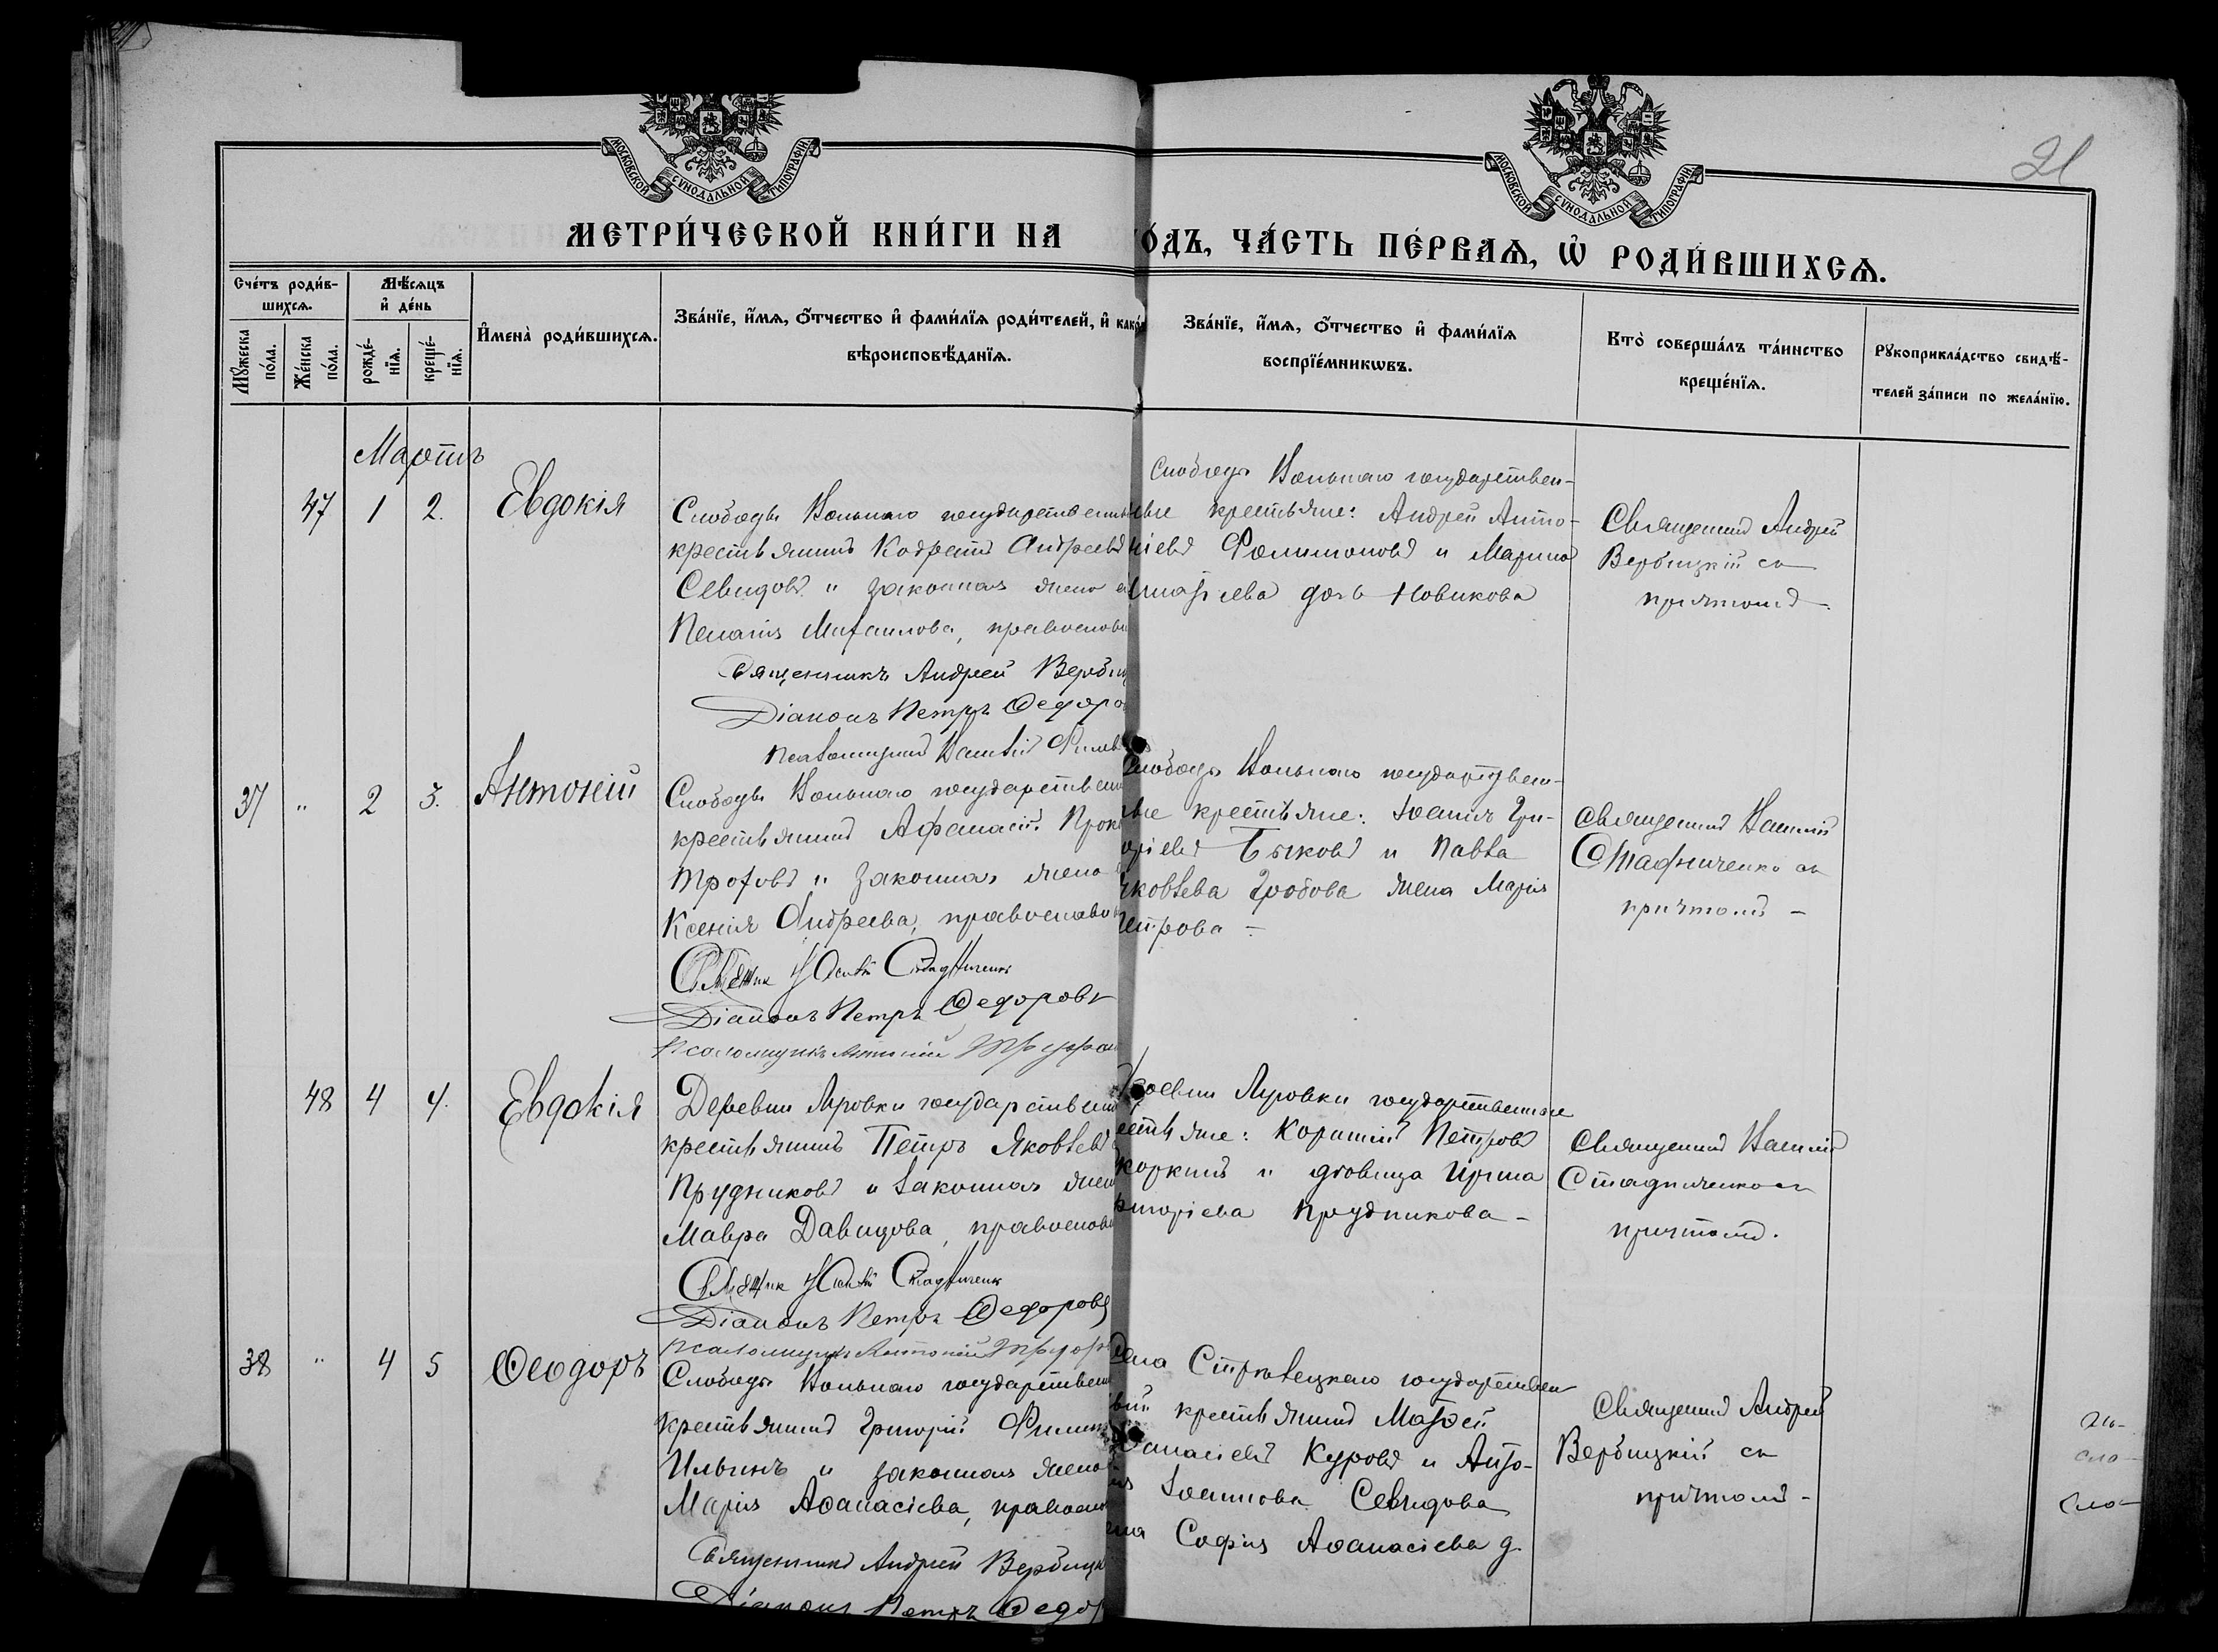 МОСКОВСКОЙ СУНОДАЛЬНОЙ ТИПОГРАФІИ
МОСКОВСКОЙ СУНОДАЛЬНОЙ ТИПОГРАФІИ
21
МЕТРИ́ЧЕСКОЙ КНИ́ГИ НА
О́ДЪ, ЧА́СТЬ ПЕ́РВАѦ, Ѡ҆ РОДИ́ВШИХСѦ.
Сче́тъ роди́в-
шихсѧ.
Мѣ́сѧцъ
и҆ де́нь
Мꙋ́жеска
по́ла.
Же́нска
по́ла.
рожде́-
нїѧ.
креще́-
нїѧ.
И҆мена̀ роди́вшихсѧ.
Зва́нїе, и҆́мѧ, ѻ҆́тчество и҆ фами́лїѧ роди́телей, и҆ како́
вѣроисповѣ́данїѧ.
Зва́нїе, и҆́мѧ, ѻ҆́тчество и҆ фами́лїѧ
воспрїе́мникѡвъ.
Кто̀ соверша́лъ та́инство
креще́нїѧ.
Рꙋкоприкла́дство свидѣ́-
телей за́писи по жела́нїю.
Мартъ
47 1 2. Евдокія
Слободы Вольнаго государственн
крестьянинъ Кодратъ Андреевъ
Севидовъ и законная жена е
Пелагія Михаилова, православн
Священникъ Андрей Верби
Діаконъ Петръ Федоро
Псаломщикъ
Слободы Вольнаго государствен-
ные крестьяне: Андрей Анто-
ніевъ Филимоновъ и Марина
дочь Новикова
Священникъ Андрей
Вербицкій съ
причтомъ
37 " 2 3. Антоній
Слободы Вольнаго государственн
крестьянинъ Афанасій Прок
Трофовъ и законная жена
Ксенія Андреева, православн
Діаконъ Петръ Федоровъ
Псаломщикъ Антоній
Слободы Вольнаго государствен-
ные крестьяне: Іоаннъ Гри-
оріевъ Быковъ и Павла
Яковлева Гробова жена Марія
Петрова -
Священникъ Василій
Стадниченко съ
причтомъ -
48 4 4. Евдокія
Деревни Луровки государственн
крестьянинъ Петръ Яковлевъ
Прудниковъ и законная жена
Мавра Давидова, православн
Діаконъ Петръ Федоровъ
Псаломщикъ Антоній
Деревни Луровки государственные
естьяне: Корнилій Петровъ
и вдовица Ирина
ригоріева Прудникова -
Священникъ Василій
Стадниченко съ
причтомъ.
38 " 4 5 Ѳеодоръ
Слободы Вольнаго государственн
крестьянинъ Григорій Филип
Ильинъ и законная жена
Марія Аѳанасіева, правосла
Священникъ Андрей Вербицк
Діаконъ Петръ Федор
Села Стрѣлецкаго государствен
ный крестьянинъ Матѳей
Аѳанасіевъ Куровъ и
Іоаннова Севидова
Софія Аѳанасіева д.
Священникъ Андрей
Вербицкій съ
причтомъ -